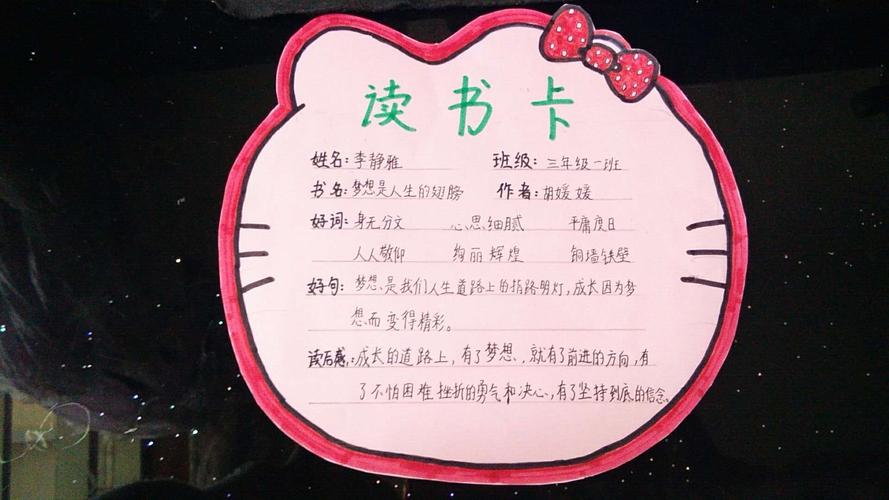 读书卡
姓名：李静雅 班级：三年级一班
书名：梦想是人生的翅膀 作者：胡媛媛
好词：身无分文 心思细腻 平庸度日
人人敬仰 绚丽辉煌 铜墙铁壁
好句：梦想是我们人生道路上的指路明灯，成长因为梦
想而变得精彩。
读后感：成长的道路上，有了梦想，就有了前进的方向，有
了不怕困难挫折的勇气和决心，有了坚持到底的信念。